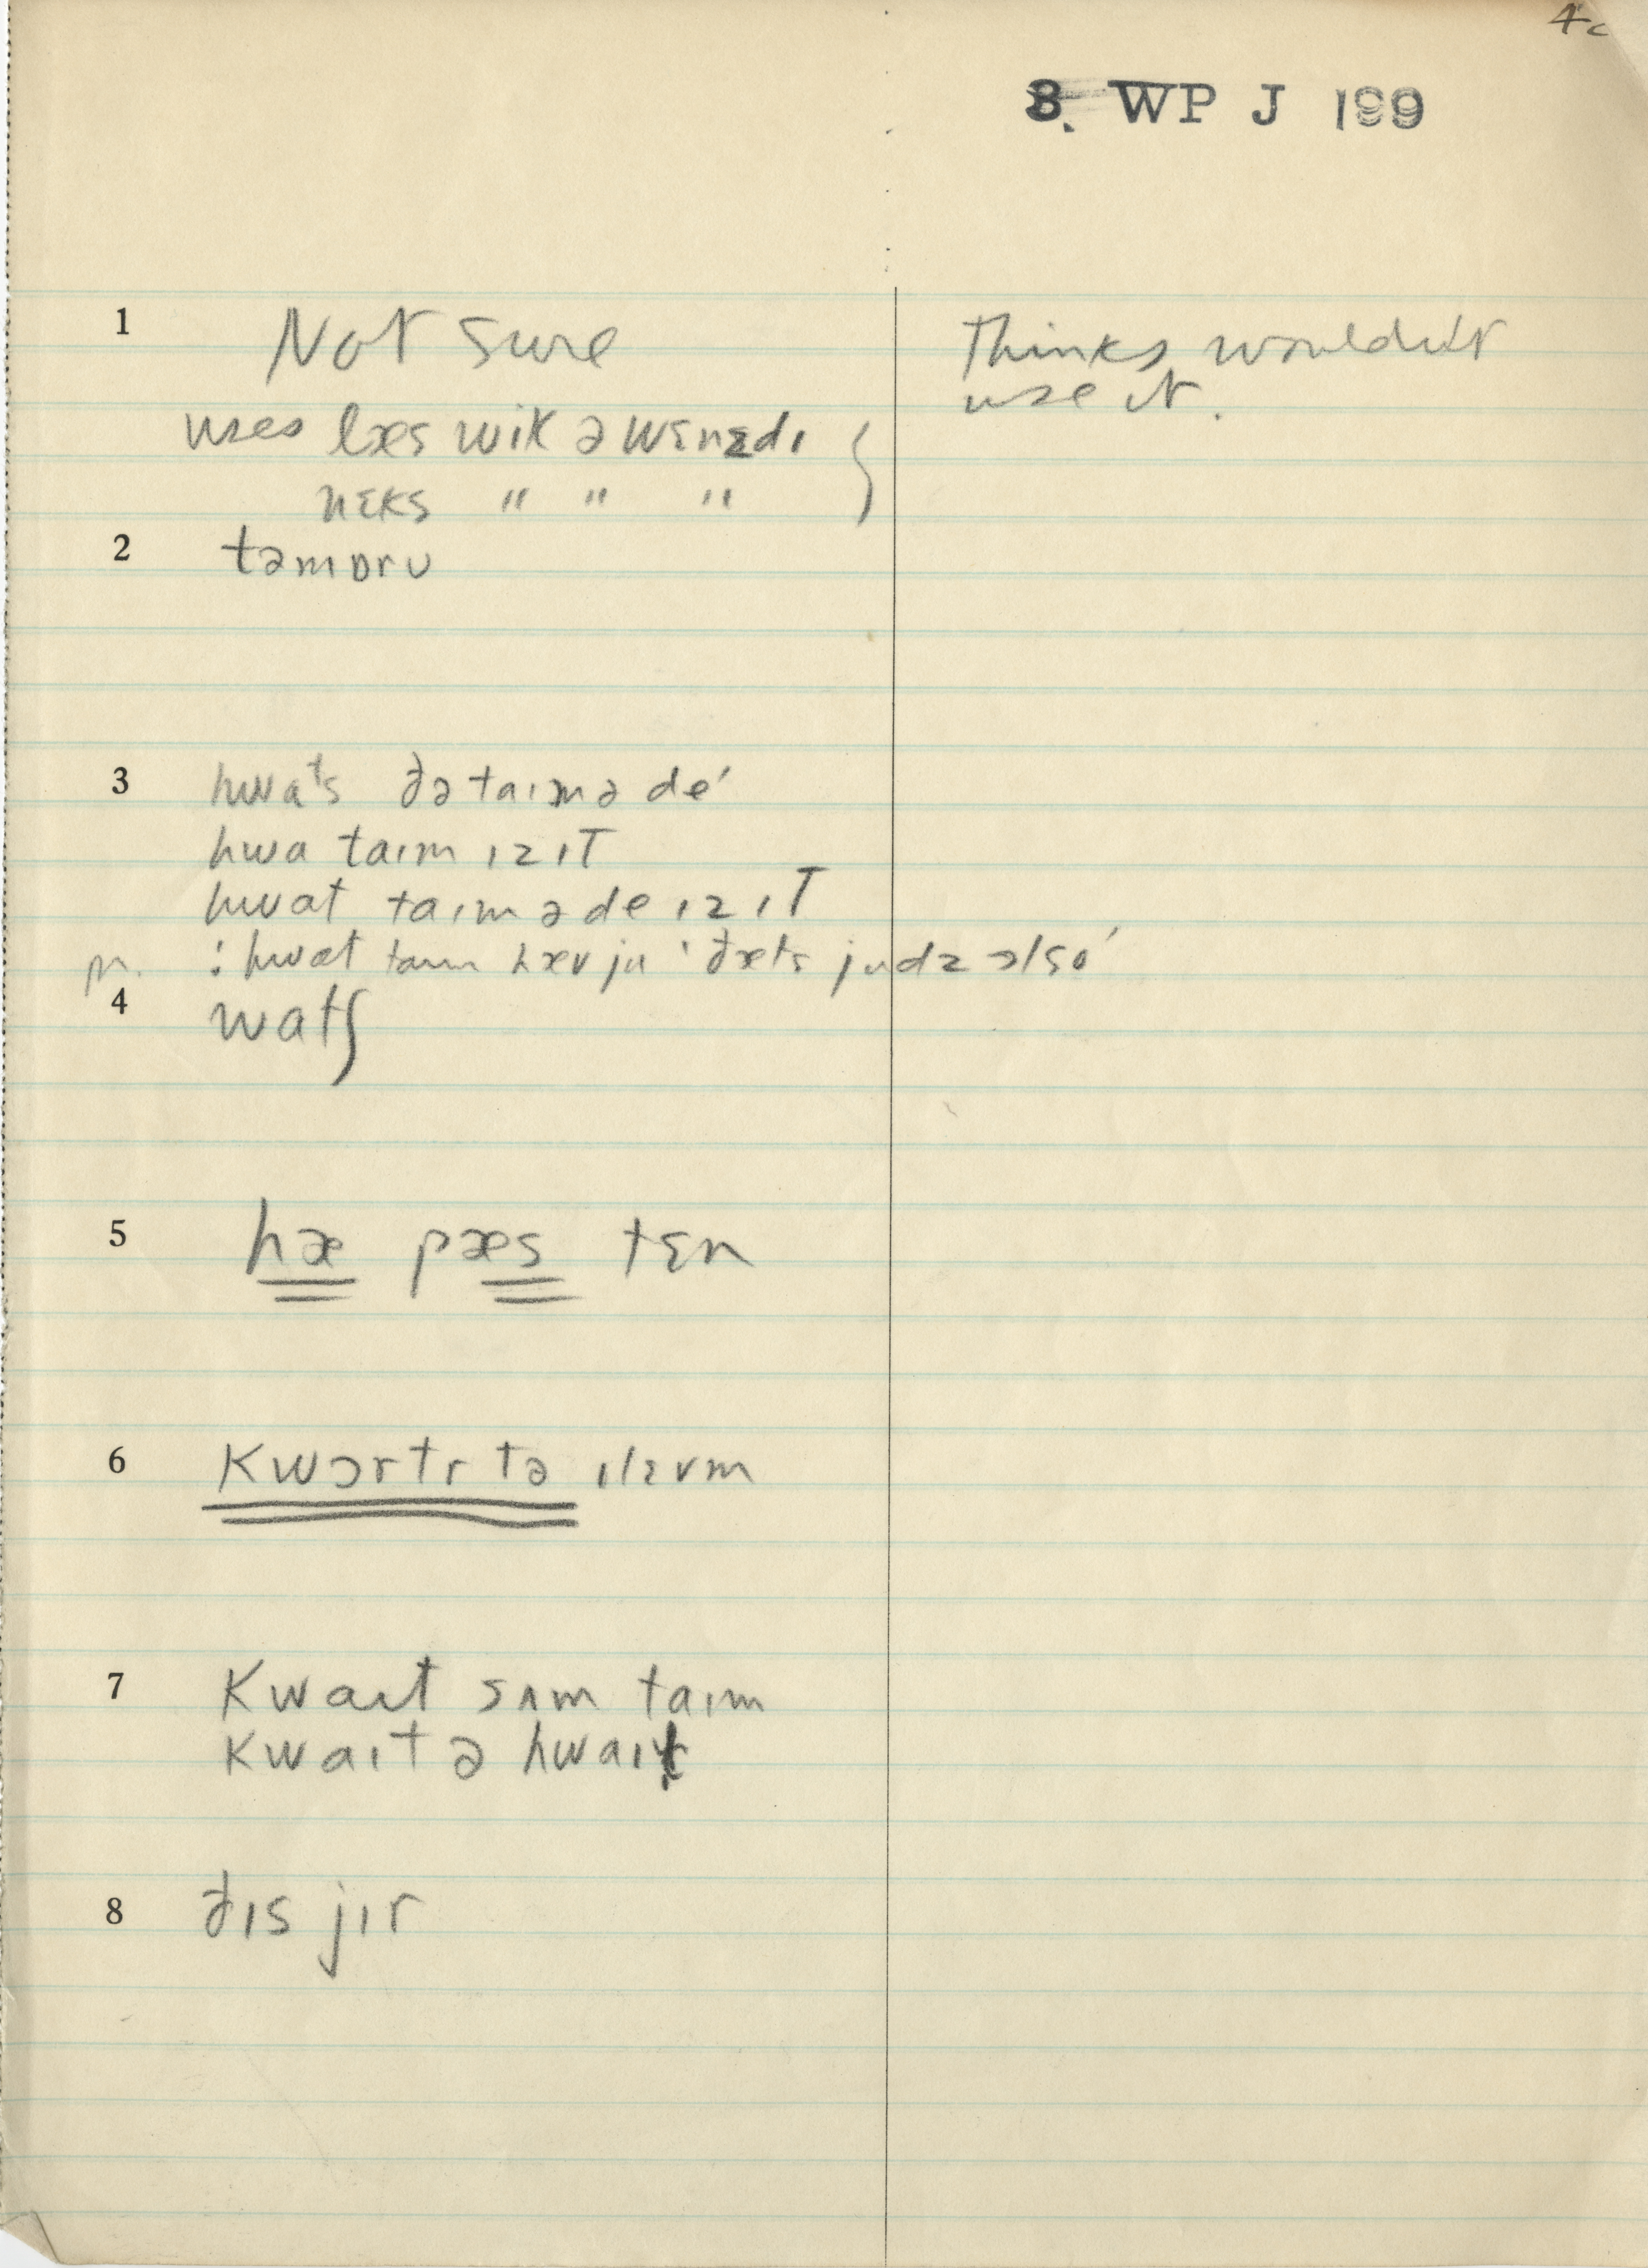 4c
8. WP J 199
1 Not sure
Thinks wouldn't
use it.
uses læs wik ə wɛnzdɪ }
nɛks " " "
2 təmɒrʊ
3 hwaᵗs ðə taɪm ə de'
hwa taɪm ɪz ɪT
hwat taɪm ə de ɪz ɪT
: hwat taɪm hæv ju ' ðæts judz ɔlso'
4 watʃ
5 hæ pæs tɛn
6 kwɔrtr tə ɪlɛvm
7 kwaɪt sʌm taɪm
kwaɪt ə hwaɪt
8 ðɪs jɪr